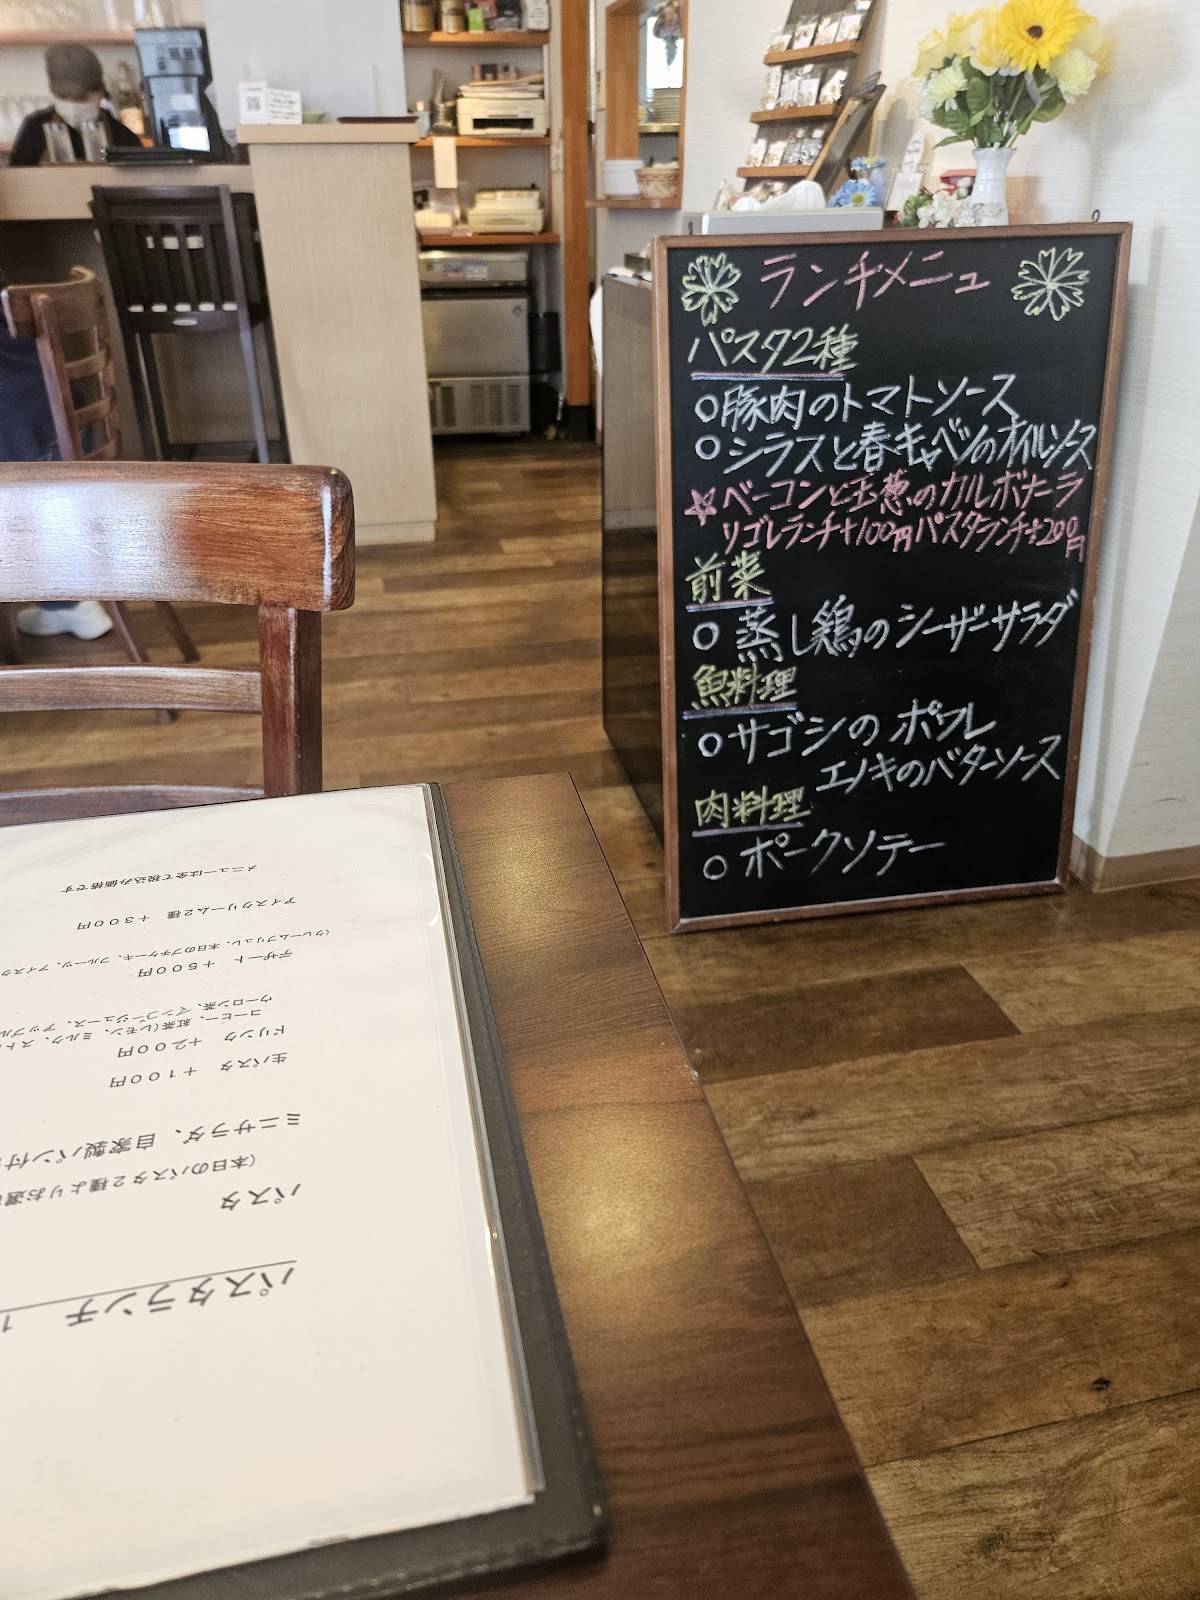 ランチメニュー
パスタ2種
○豚肉のトマトソース
○シラスと春キャベツのオイルソース
☆ベーコンと玉葱のカルボナーラ
リゴレランチ+100円パスタランチ+200円
前菜
○蒸し鶏のシーザーサラダ
魚料理
○サゴシのポワレ
エノキのバターソース
肉料理
○ポークソテー
パスタランチ 1
パスタ
(本日のパスタ2種よりお選
ミニサラダ、自家製パン付
生パスタ +100円
ドリンク +200円
コーヒー、紅茶(レモン、ミルク、スト
ウーロン茶、マンゴージュース、アップル
デザート +500円
(クレームブリュレ、本日のプチケーキ、フルーツ、アイスク
アイスクリーム2種 +300円
メニューは全て税込み価格です